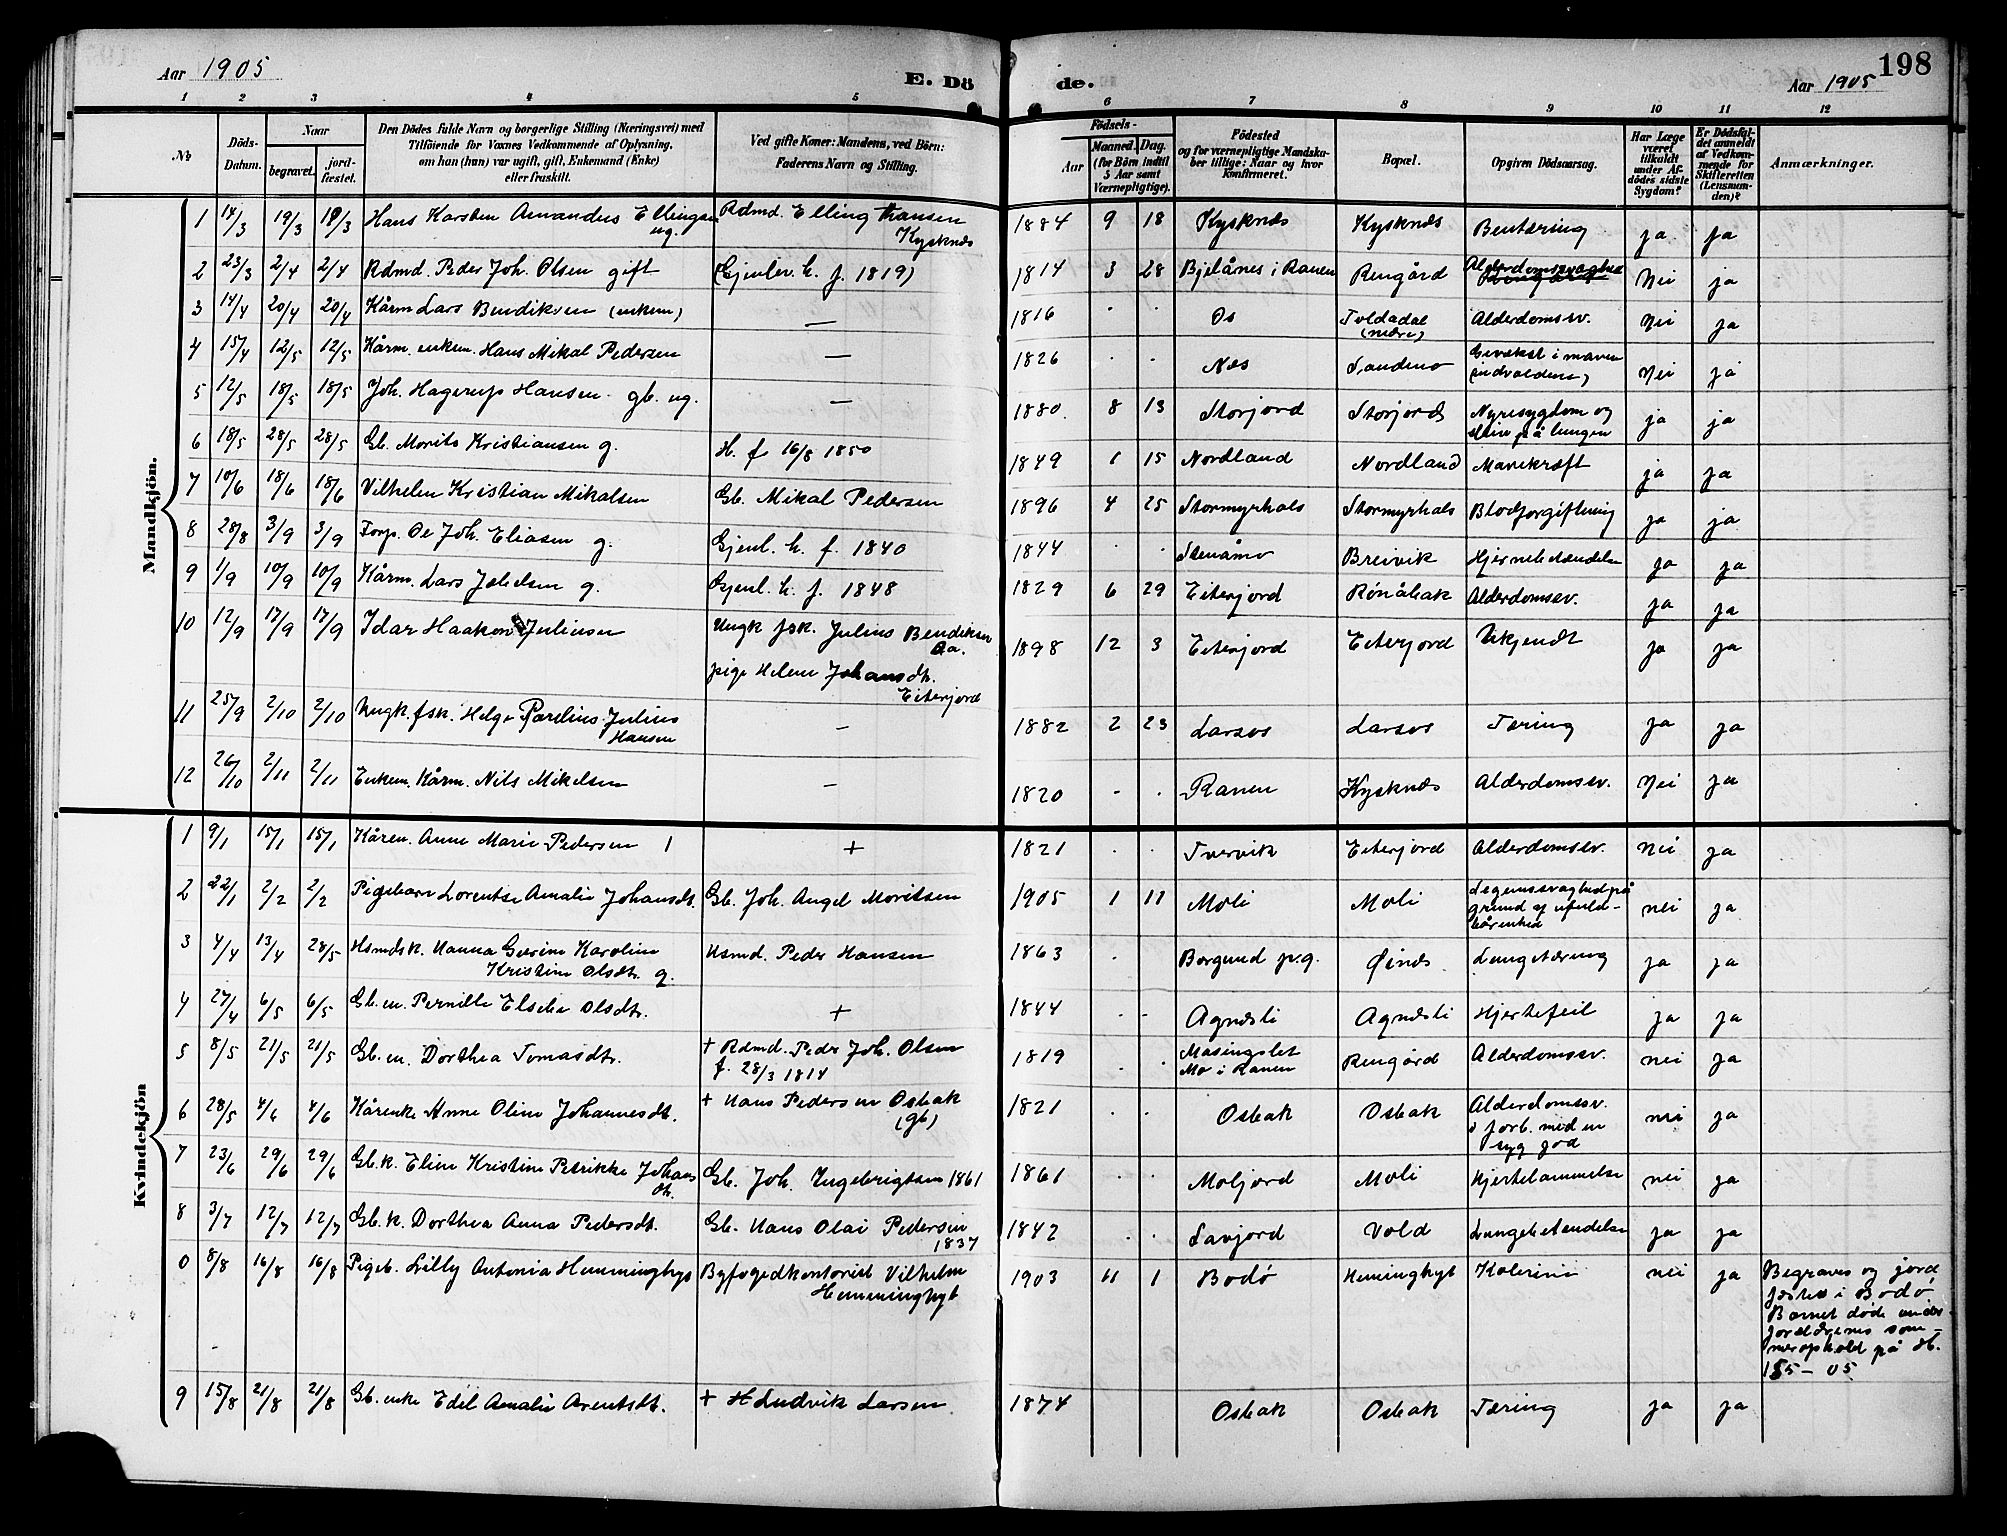 Aar 1905 E. Dö
de. Aar 1905 198
1 2 3 4 5 6 7 8 9 10 11 12
№
Döds-Datum.
Naar
begravet. jord-fæstet.
Den Dödes fulde Navn og borgerlige Stilling (Næringsvei) med
Tilföiende for Voxnes Vedkommende af Oplysning,
om han (hun) var ugift, gift, Enkemand (Enke)
eller fraskilt.
Ved gifte Koner: Mandens, ved Börn:
Faderens Navn og Stilling.
Födsels-
Aar
Maaned. Dag.
(for Börn indtil
5 Aar samt
Værnepligtige).
Födested
og for værnepligtige Mandska-
ber tillige: Naar og hvor
Konfirmeret.
Bopæl.
Opgiven Dödsaarsag.
Har Læge
været
tilkaldt
under Af-
dödes sidste
Sygdom?
Er Dödsfal-
det anmeldt
af Vedkom-
mende for
Skifteretten
(Lensman-
den)?
Anmærkninger.
Mandkjön.
1 14/3 19/3 19/3 Hans Karsten Amandus Ellingsen ug. Rdmd. Elling Hansen Kysknæs 1884 9 18 Kysknæs Kysknæs Bentæring ja ja
2 23/3 2/4 2/4 Rdmd. Peder Joh. Olsen gift (Gjenlev. h. f. 1819) 1814 3 28 Bjelånes i Ranen Rengård Alderdomssvaghed Nei ja
3 14/4 20/4 20/4 Kårm Lars Bendiksen (enkem) — 1816 . . Os Toldådal (nedre) Alderdomssv. Nei ja
4 15/4 12/5 12/5 Kårm. enkem. Hans Mikal Pedersen — 1826 . . Nes Sandmo Gevækst i maven (indvoldene) Nei ja
5 12/5 18/5 18/5 Joh. Hagerup Hansen. gb. ug. — 1880. 8 13 Storjord Storjord Nyresygdom og slim på lungen ja ja
6 18/5 28/5 28/5 Gb. Morits Kristiansen g. H. f 16/8 1850 1849 1 15 Nordland Nordland Mavekræft ja ja
7 10/6 18/6 18/6 Vilhelm Kristian Mikalsen Gb. Mikal Pedersen 1896 4 25 Stormyrhals Stormyrhals Blodforgiftning ja ja
8 28/8 3/9 3/9 Forp. Ole Joh. Eliasen g. Gjenl. h. f. 1840 1844 . . Stenåmo Breivik Hjernebetændelse ja ja
9 1/9 10/9 10/9 Kårm. Lars Jakelsen g. Gjenl. h. f. 1848 1829 6 29 Eiterjord Rönåbak Alderdomssv. ja ja
10 12/9 17/9 17/9 Idar Haakon Juliusen Ungk fsk. Julius Bendiksen Aa. 1898 12 3 Eiterjord Eiterjord Ukjendt ja ja
pige Helene Johansdt. Eiterjord
11 25/9 2/10 2/10 Ungk. fsk. Helge Parelius Julius Hansen — 1882 2 23 Larsos Larsos Tæring ja ja
12 26/10 2/11 2/11 Enkem. Kårm. Nils Mikelsen — 1820 - . Ranen Kysknæs Alderdomssv. Nei ja
Kvindekjön
1 9/1 15/1 15/1 Kåren. Anne Marie Pedersen + 1821 . . Tvervik Eiterjord Alderdomssv. nei ja
2 22/1 2/2 2/2 Pigebarn Lorentse Amalie Johansdt. Gb. Joh. Angel Moritsen 1905 1 11 Moli Moli Legemssvaghed på grund af ufuld-bårenhed nei ja
3 4/4 13/4 28/5 Hsmdsk. Hanna Gurine Karoline Kristine Olsdt. g. Hsmd. Peder Hansen 1863 . Borgund p.g. Öinæs Lungetæring ja ja
4 27/4 6/5 6/5 Gb. en. Pernille Elsebe Olsdt. + 1844 . . Agnæsli Agnæsli Hjertefeil ja ja
5 8/5 21/5 21/5 Gb. en. Dorthea Tomasdt. + Rdmd. Peder Joh. Olsen f. 28/3 1814 1819 . . Masingslet Mo i Ranen Rengård Alderdomssv. nei ja
6 28/5 4/6 4/6 Kårenke Anne Oline Johannesdt. + Hans Pedersen Osbak (gb) 1821 . . Osbak Osbak Alderdomssv. i forb. med en syg fod nei ja
7 23/6 29/6 29/6 Gb. k. Eline Kristine Petrikke Johansdt. Gb. Joh. Ingebrigtsen 1861 1861 . . Moljord Moli Hjertelammelse nei ja
8 3/7 12/7 12/7 Gb. k. Dorthea Anna Pedersdt. Gb. Hans Olai Pedersen 1837 1842 . . Savjord Vold Lungebetændelse ja ja
0 8/8 16/8 16/8 Pigeb. Lilly Antonia Hemminghyt Byfogedkontorist Vilhelm Hemminghyt 1903 11 1 Bodö Heminghyt Kolerine nei ja Begraves og jord
fæstes i Bodö
Barnet döde under
forældrenes som-
merophold på H.
185 – 05
9 15/8 21/8 21/8 Gb. enke Edel Amalie Arentsdt. + H Ludvik Larsen 1874 Osbak Osbak Tæring ja ja